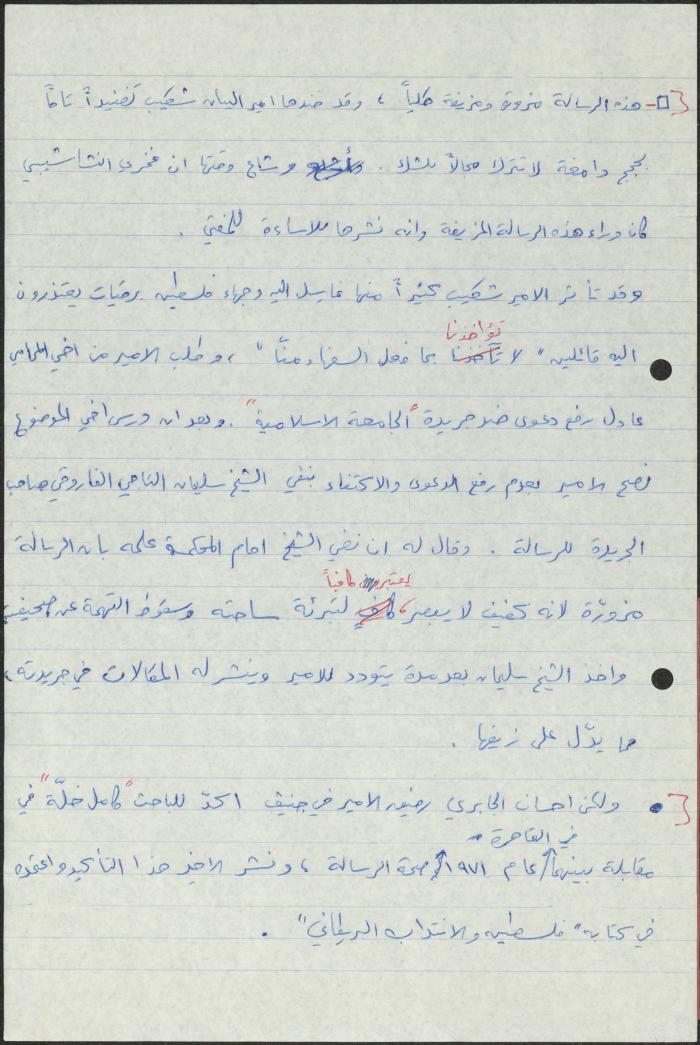 هذه الرسالة مزورة ومزيفة كلياً ، وقد فندها امير البيان شكيب تفنيداً تاماً
بحجج دامغة لا تترك مجالاً للشك . وشاع وقتها ان فخري النشاشيبي
كان وراء هذه الرسالة المزيفة وانه نشرها للاساءة للمفتي .
وقد تأثر الامير شكيب كثيراً منها فارسل اليه وجهاء فلسطين برقيات يعتذرون
تؤاخذنا
اليه قائلين " لا تآخذنا بما فعل السفهاء منّا " ، وطلب الامير من اخي المحامي
عادل رفع دعوى ضد جريدة "الجامعة الاسلامية" . وبعد ان درس اخي الموضوع
نصح الامير بعدم رفع الدعوى والاكتفاء بنفي الشيخ سليمان التاجي الفاروقي صاحب
الجريدة للرسالة . وقال له ان نفي الشيخ امام المحكمة علمه بان الرسالة
يعتبر كافياً
مزورّة لانه كفيف لا يبصر ، كافٍ لتبرئة ساحته وسقوط التهمة عن صحيفته
واخذ الشيخ سليمان بعد مدة يتودد للامير وينشر له المقالات في جريدته ،
مما يدّل على زيفها .
• ولكن احسان الجابري رفيق الامير في جنيف اكدّ للباحث "كامل خلّة" في
في القاهرة
مقابلة بينهما عام ١٩٧١ صحة الرسالة ، ونشر الاخير هذا التأكيد واعتمده
في كتابه " فلسطين والانتداب البريطاني " .